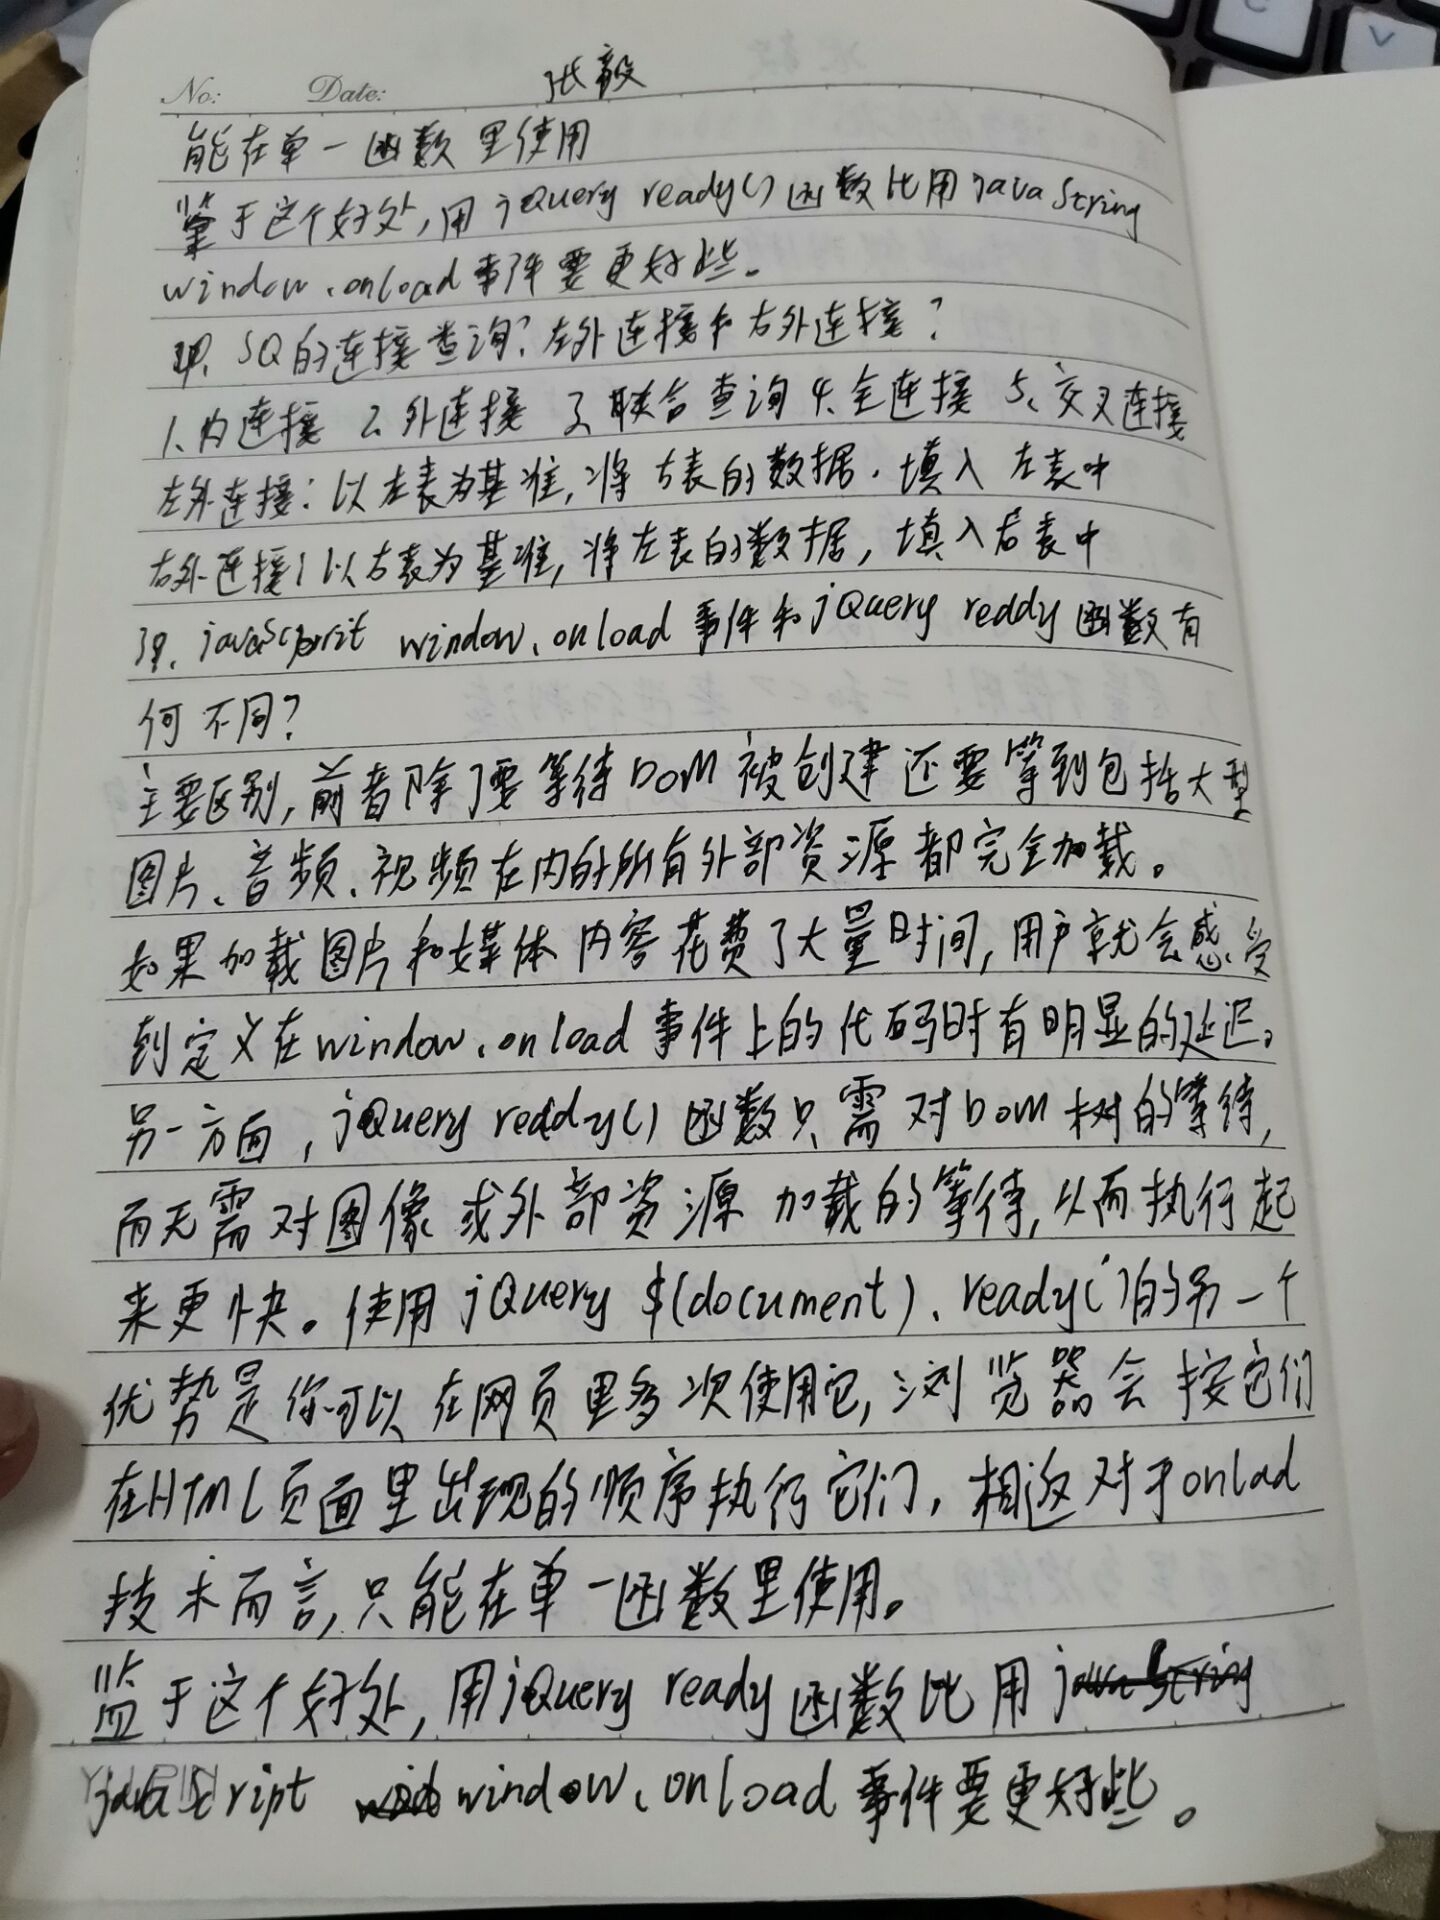 No:  Date:  张毅
能在单一函数里使用
鉴于这个好处,用jQuery ready()函数比用javaString
window.onload事件要更好些。
SQ的连接查询?左外连接和右外连接?
1、内连接 2、外连接 3、联合查询 4、全连接 5、交叉连接
左外连接:以左表为基准,将右表的数据.填入左表中
右外连接:以右表为基准,将左表的数据,填入右表中
window.onload事件和jQuery reddy函数有
何不同?
主要区别,前者除了要等待DOM被创建还要等到包括大型
图片、音频、视频在内的所有外部资源都完全加载。
如果加载图片和媒体内容花费了大量时间,用户就会感受
到定义在window.onload事件上的代码时有明显的延迟。
另一方面,jQuery reddy()函数只需对DOM树的等待,
而无需对图像或外部资源加载的等待,从而执行起
来更快。使用jQuery $(document).ready()的另一个
优势是你可以在网页里多次使用它,浏览器会按它们
在HTML页面里出现的顺序执行它们,相返对于onlad
技术而言,只能在单一函数里使用。
监于这个好处,用jQuery ready函数比用
javaScript window.onload事件要更好些。